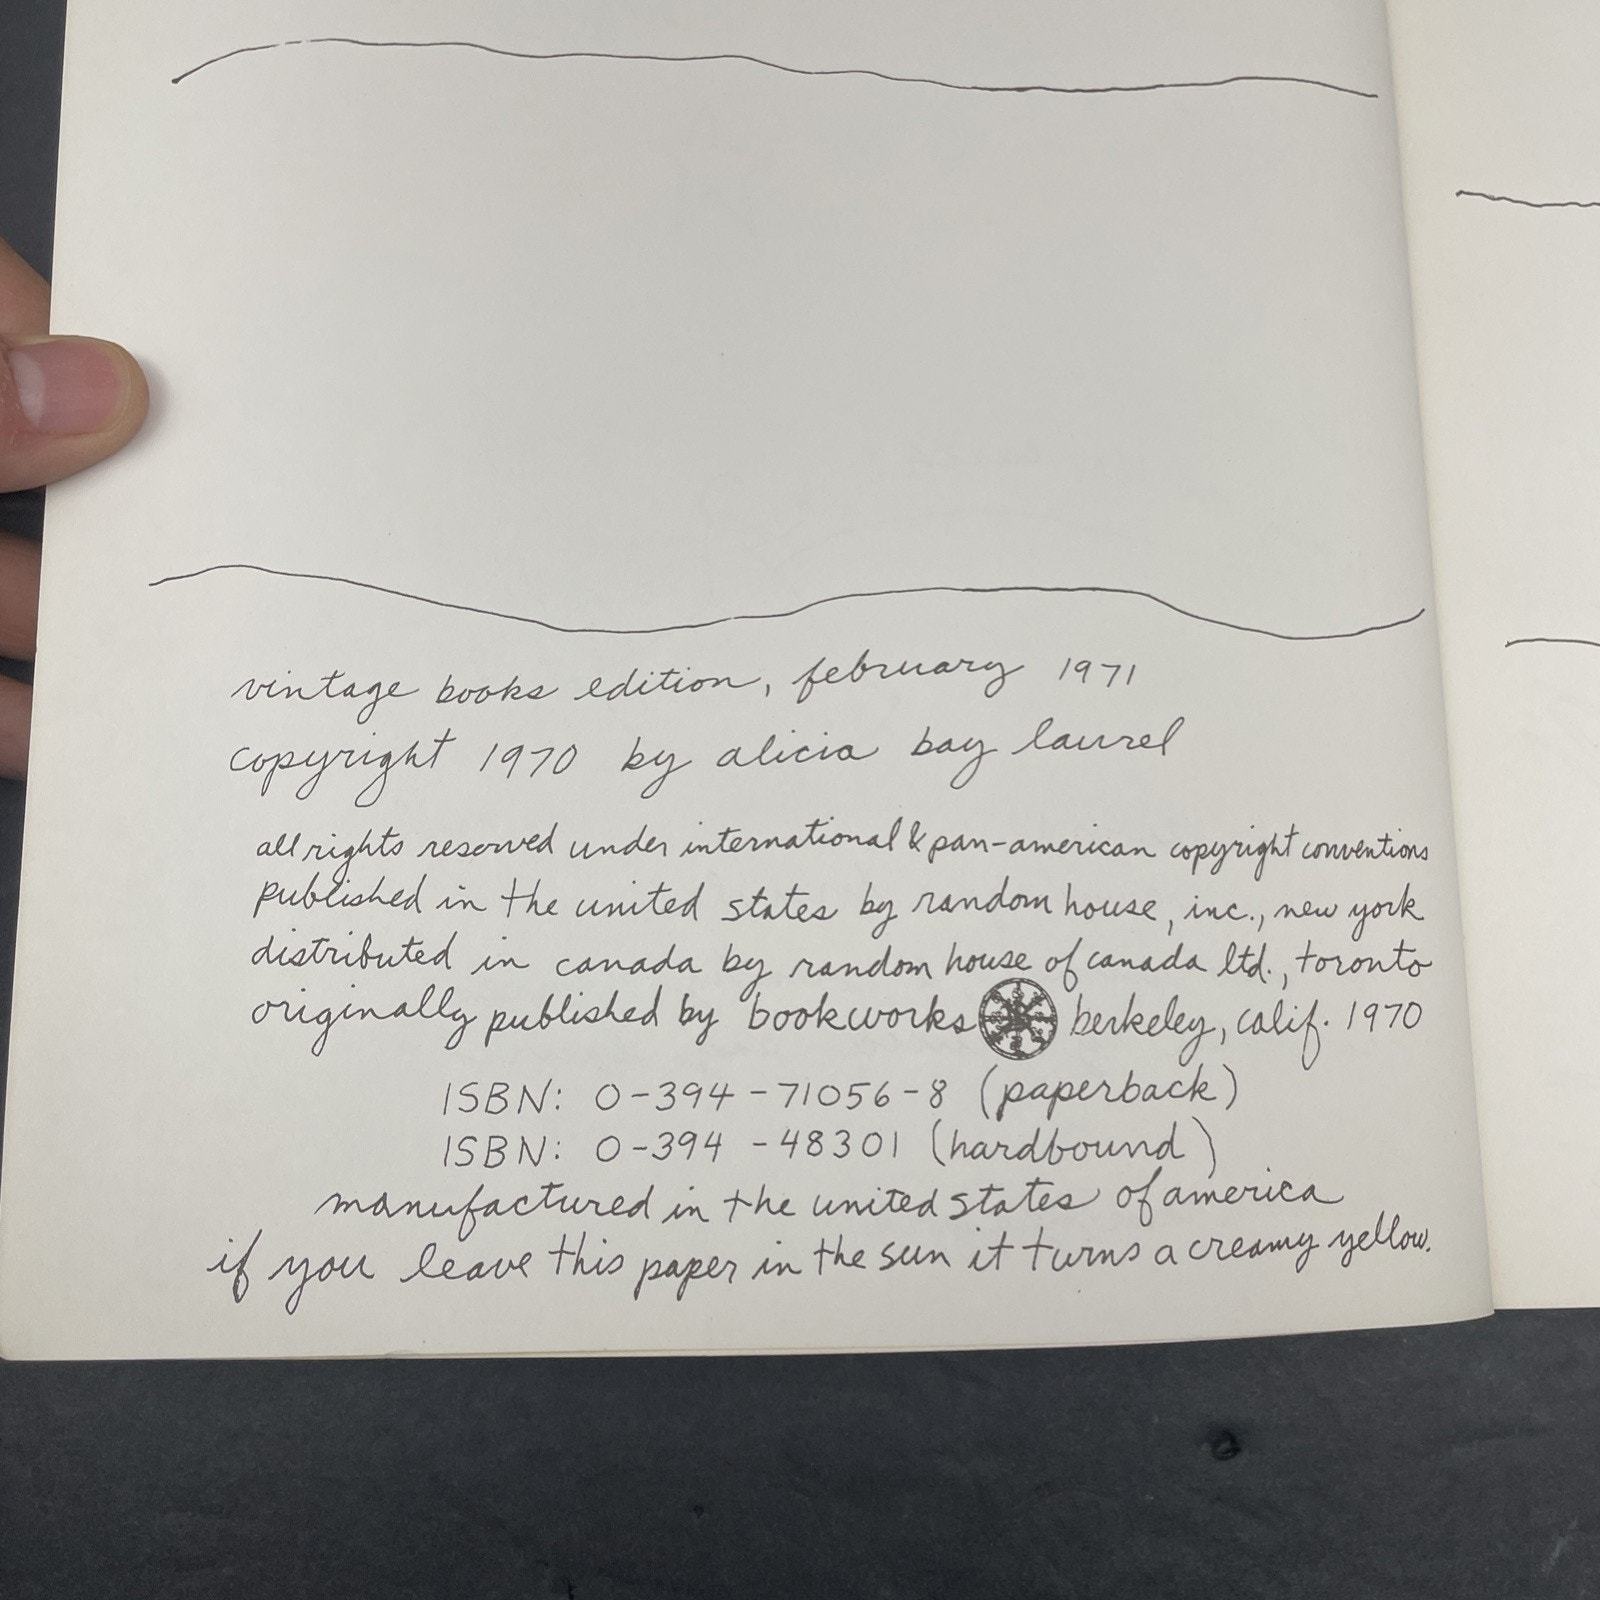 vintage books edition, february 1971
copyright 1970 by alicia bay laurel
all rights reserved under international & pan-american copyright conventions
published in the united states by random house, inc., new york
distributed in canada by random house of canada ltd., toronto
originally published by bookworks berkeley, calif. 1970
ISBN: 0-394-71056-8 (paperback)
ISBN: 0-394-48301 (hardbound)
manufactured in the united states of america
if you leave this paper in the sun it turns a creamy yellow.